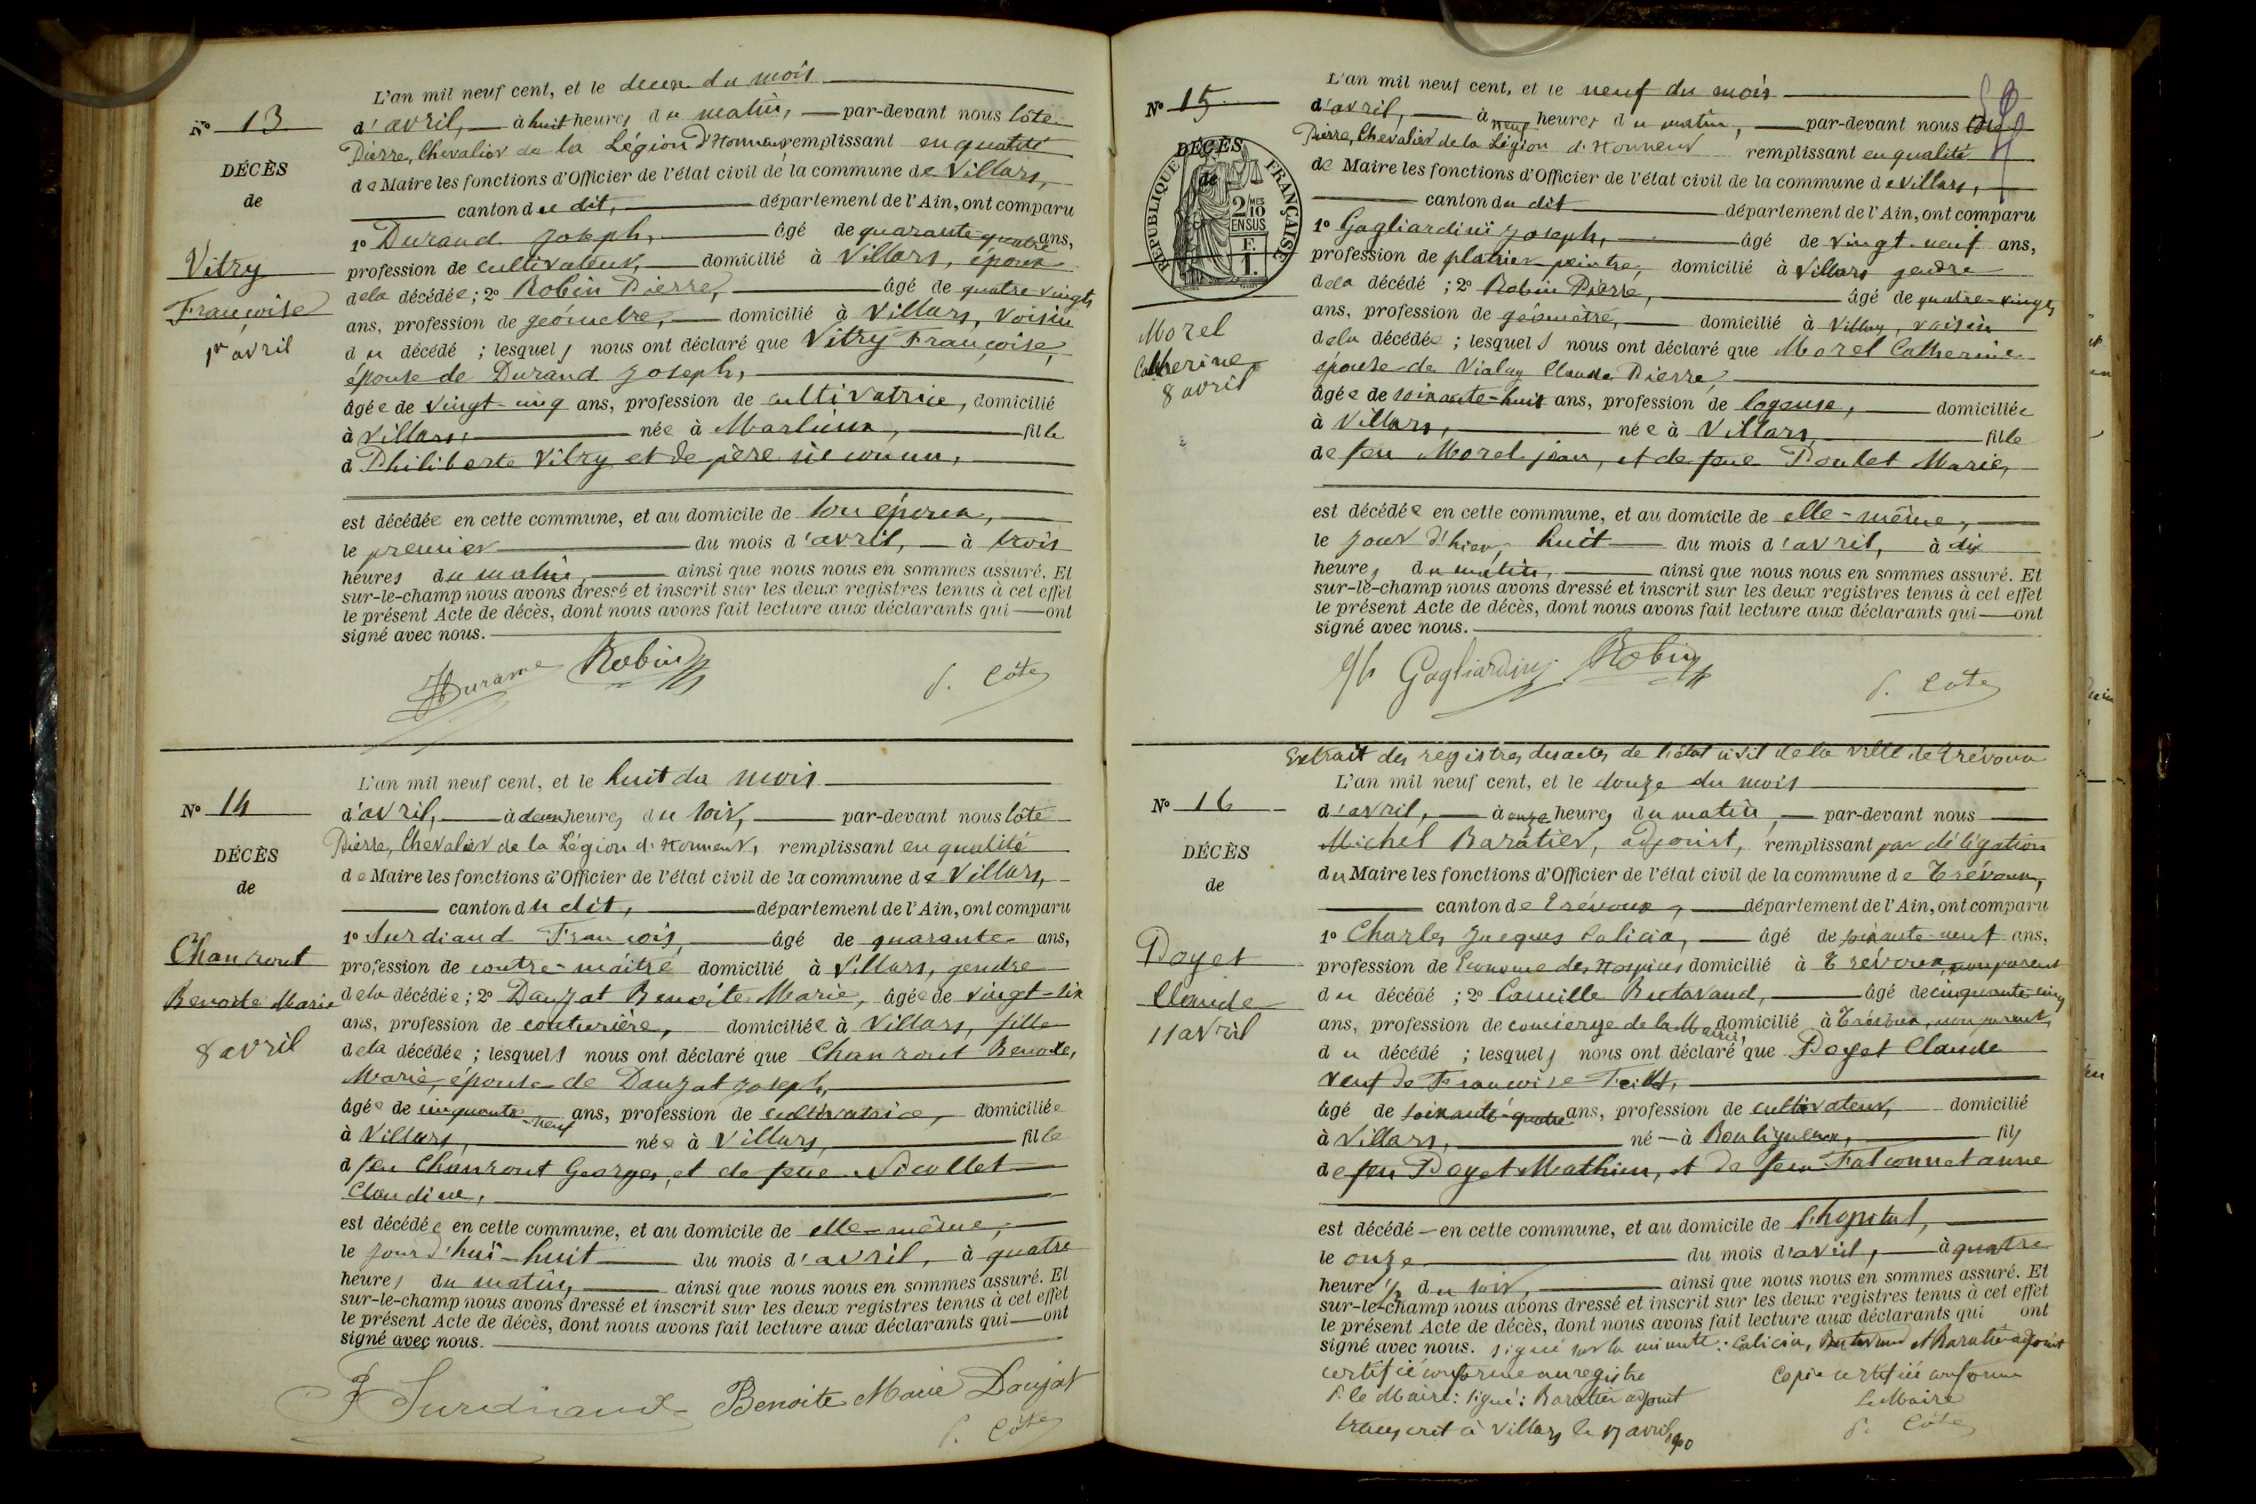 L'an mil neuf cent, et le deux du mois
N° 13
d'avril, à huit heures du matin, par-devant nous Côte
Pierre, Chevalier de la Légion d'Honneur remplissant en qualité
DÉCÈS
de Maire les fonctions d'Officier de l'état civil de la commune de Villars,
de
canton du dit, département de l'Ain, ont comparu
1° Durand Joseph, âgé de quarante-quatre ans,
Vitry
profession de cultivateur, domicilié à Villars, époux
Françoise
de la décédée; 2° Robin Pierre, âgé de quatre vingts
1er avril
ans, profession de géomètre, domicilié à Villars, voisin
du décédé ; lesquels nous ont déclaré que Vitry Françoise,
épouse de Durand Joseph,
âgée de vingt-cinq ans, profession de cultivatrice, domicilié
à Villars, née à Marlieux, fille
d Philiberte Vitry et de père inconnu,
est décédée en cette commune, et au domicile de son époux,
le premier du mois d'avril, à trois
heures du matin, ainsi que nous nous en sommes assuré. Et
sur-le-champ nous avons dressé et inscrit sur les deux registres tenus à cet effet
le présent Acte de décès, dont nous avons fait lecture aux déclarants qui ont
signé avec nous.
Durand Robin P. Côte
L'an mil neuf cent, et le huit du mois
N° 14
d'avril, à deux heures du soir, par-devant nous Côte
Pierre, Chevalier de la Légion d'Honneur, remplissant en qualité
DÉCÈS
de Maire les fonctions d'Officier de l'état civil de la commune de Villars,
de
canton du dit, département de l'Ain, ont comparu
1° Surdiaud François, âgé de quarante ans,
Chanrout
profession de contre-maître domicilié à Villars, gendre
Benoite Marie
de la décédée; 2° Daujat Benoite Marie, âgée de vingt-six
ans, profession de couturière, domiciliée à Villars, fille
8 avril
de la décédée ; lesquels nous ont déclaré que Chanrout Benoite,
Marie, épouse de Daujat Joseph,
âgée de cinquante-neuf ans, profession de cultivatrice, domiciliée
à Villars, née à Villars, fille
d feu Chanrout Georges, et de feue Nicollet
Claudine,
est décédée en cette commune, et au domicile de elle-même,
le jour d'hui huit du mois d'avril, à quatre
heures du matin, ainsi que nous nous en sommes assuré. Et
sur-le-champ nous avons dressé et inscrit sur les deux registres tenus à cet effet
le présent Acte de décès, dont nous avons fait lecture aux déclarants qui ont
signé avec nous.
F Surdiaud Benoite Marie Daujat
P. Côte
L'an mil neuf cent, et le neuf du mois
N° 15
d'avril, à neuf heures du matin, par-devant nous Côte
Pierre, Chevalier de la Légion d'Honneur remplissant en qualité
DÉCÈS
de
RÉPUBLIQUE FRANÇAISE
2/10 MES
EN SUS
F.
1.
de Maire les fonctions d'Officier de l'état civil de la commune de Villars,
canton du dit département de l'Ain, ont comparu
1° Gagliardini Joseph, âgé de vingt-neuf ans,
profession de plâtrier peintre, domicilié à Villars gendre
de la décédé ; 2° Robin Pierre, âgé de quatre-vingts
Morel
ans, profession de géomètre, domicilié à Villars, voisin
Catherine
de la décédée ; lesquels nous ont déclaré que Morel Catherine
8 avril
épouse de Vialay Claude Pierre,
âgée de soixante-huit ans, profession de logeuse, domiciliée
à Villars, née à Villars, fille
de feu Morel jean, et de feue Poulet Marie,
est décédée en cette commune, et au domicile de elle-même,
le jour d'hier, huit du mois d'avril, à dix
heures du matin, ainsi que nous nous en sommes assuré. Et
sur-le-champ nous avons dressé et inscrit sur les deux registres tenus à cet effet
le présent Acte de décès, dont nous avons fait lecture aux déclarants qui ont
signé avec nous.
Gagliardini Robin
P. Côte
Extrait des registres des actes de l'état civil de la ville de Trévoux
L'an mil neuf cent, et le douze du mois
N° 16
d'avril, à onze heures du matin, par-devant nous
Michel Baratier, adjoint, remplissant par délégation
DÉCÈS
du Maire les fonctions d'Officier de l'état civil de la commune de Trévoux,
de
canton de Trévoux, département de l'Ain, ont comparu
1° Charles Jacques Calicia, âgé de soixante-neuf ans,
Poyet
profession de Econome des Hospices domicilié à Trévoux, non parent
Claude
du décédé ; 2° Camille Butavand, âgé de cinquante cinq
11 avril
ans, profession de concierge de la Mairie, domicilié à Trévoux, non parent,
du décédé ; lesquels nous ont déclaré que Poyet Claude
veuf de Françoise
âgé de soixante-quatre ans, profession de cultivateur, domicilié
à Villars, né à Bouligneux, fils
de feu Poyet Mathieu, et de feue Falconnet anne
est décédé en cette commune, et au domicile de l'hopital,
le onze du mois d'avril, à quatre
heure ½ du soir, ainsi que nous nous en sommes assuré. Et
sur-le-champ nous avons dressé et inscrit sur les deux registres tenus à cet effet
le présent Acte de décès, dont nous avons fait lecture aux déclarants qui ont
signé avec nous. signé sur la minute: Calicia, Butavand et Baratier adjoint
certifié conforme au registre Copie certifiée conforme
P. le Maire: signé: Baratier adjoint Le Maire
transcrit à Villars le 17 avril 1900 P. Côte